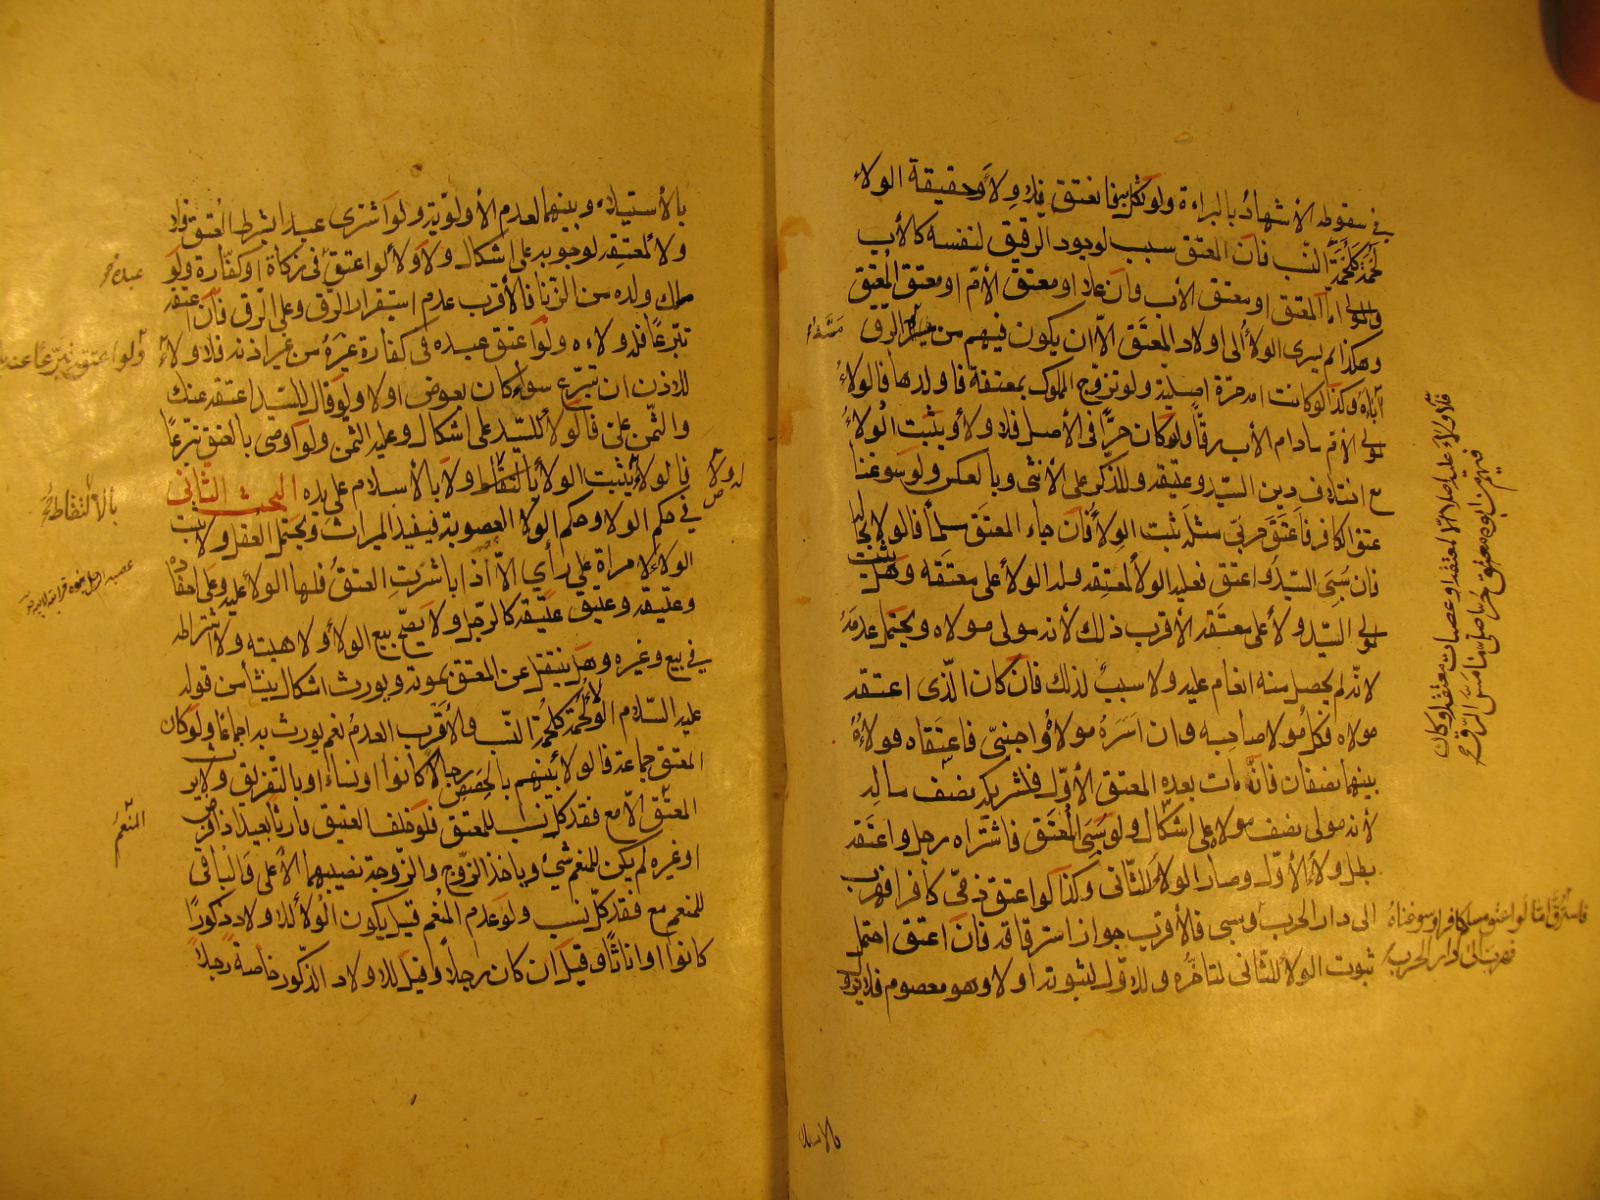 في سقوطه الأشهاد بالبراءة ولو نكل بها فانعتق فلا ولاء وحقيقة الولاء
لحمة كلحمة النسب فان المعتق سبب لوجود الرقيق لنفسه كالأب
والولاء اما المعتق او معتق الأب وان علا او معتق الأم او معتق المعتق
وهكذا لم يسرى الولاء الى اولاد المعتق الا ان يكون فيهم من الرق
آبائه وكذا لو كانت امه حرة اصلية ولو تزوج المملوك بمعتقة فاولدها فالولاء
لمولى الأم مادام الأب رقا ولو كان حرا في الأصل فلا ولاء ويثبت الولاء
مع اختلاف دين السيد وعتيقه وللذكر على الأنثى وبالعكس ولو سوغنا
عتق الكافر فاعتق حربي مثله ثبت الولاء فان جاء المعتق مسلما فالولاء بحاله
فان سبي السيد واعتق فعليه الولاء لمعتقه وله الولاء على معتقه وهل يثبت
لمولى السيد ولاء على معتقه الأقرب ذلك لأنه مولى مولاه ويحتمل عدمه
لأنه لم يحصل منه انعام عليه ولا سبب لذلك فان كان الذي اعتقه
مولاه فكل مولا صاحبه وان اسره مولاه واجنبي فاعتقاه فولاؤه
بينهما نصفان فان مات بعده المعتق الأول فلشريكه نصف ماله
لأنه مولى نصف مولاه على اشكال ولو سبي المعتق فاشتراه رجل واعتقه
بطل ولاء الأول وصار الولاء للثاني وكذا لو اعتق ذمي كافرا فهرب
الى دار الحرب وسبي فالأقرب جواز استرقاقه فان اعتق احتمل
ثبوت الولاء للثاني لتأخره وللاول لثبوته اولا وهو معصوم فلا يزول
فلا ولاء عليه اصلا الا لمعتقه او عصبات معتقه ولو كان
فيهم من ابوه معتق حر اصلي ما مسه الرق
فاسترق اما لو اعتق مسلم كافرا وسوغناه
فهرب الى دار الحرب
بالاستيلاء وبينهما لعدم الأولوية ولو اشترى عبدا بشرط العتق فلا
ولاء لمعتقه لوجوبه على اشكال ولا ولاء لو اعتق في زكاة او كفارة ولو
ملك ولده من الزنا فالأقرب عدم استقرار الرق وعلى الرق فان اعتقه
تبرعا فله ولاءه ولو اعتق عبده في كفارة غيره من غير اذنه فلا ولاء
للاذن ان تبرع سواء كان بعوض اولا ولو قال للسيد اعتقه عنك
والثمن علي فالولاء للسيد على اشكال وعليه الثمن ولو اوصى بالعتق تبرعا
فالولاء له ولا يثبت الولاء بالتقاط ولا بالأسلام على يده البحث الثاني
في حكم الولاء وحكم الولاء العصوبة فيفيد الميراث وتحتمل العقل ولا يثبت
الولاء لامرأة على رأي الا اذا باشرت العتق فلها الولاء عليه وعلى احفاده
وعتيقه وعتيق عتيقه كالرجل ولا يصح بيع الولاء ولا هبته ولا اشتراطه
في بيع وغيره وهل ينتقل عن المعتق بموته ويورث اشكال ينشأ من قوله
عليه السلام الولاء لحمة كلحمة النسب والأقرب العدم نعم يورث به اجماعا ولو كان
المعتق جماعة فالولاء بينهم بالحصص رجالا كانوا او نساء او بالتفريق ولا يرث
المعتق الا مع فقد كل نسب للمعتق فلو خلف العتيق وارثا بعيدا ذا فرض
او غيره لم يكن للمنعم شيء ويأخذ الزوج والزوجة نصيبهما الأعلى والباقي
للمنعم مع فقد كل نسب ولو عدم المنعم قيل يكون الولاء للاولاد ذكورا
كانوا او اناثا وقيل ان كان رجلا وقيل للاولاد الذكور خاصة رجلا
عبده
ولو اعتق تبرعا عنه
بالالتقاط
المنعم